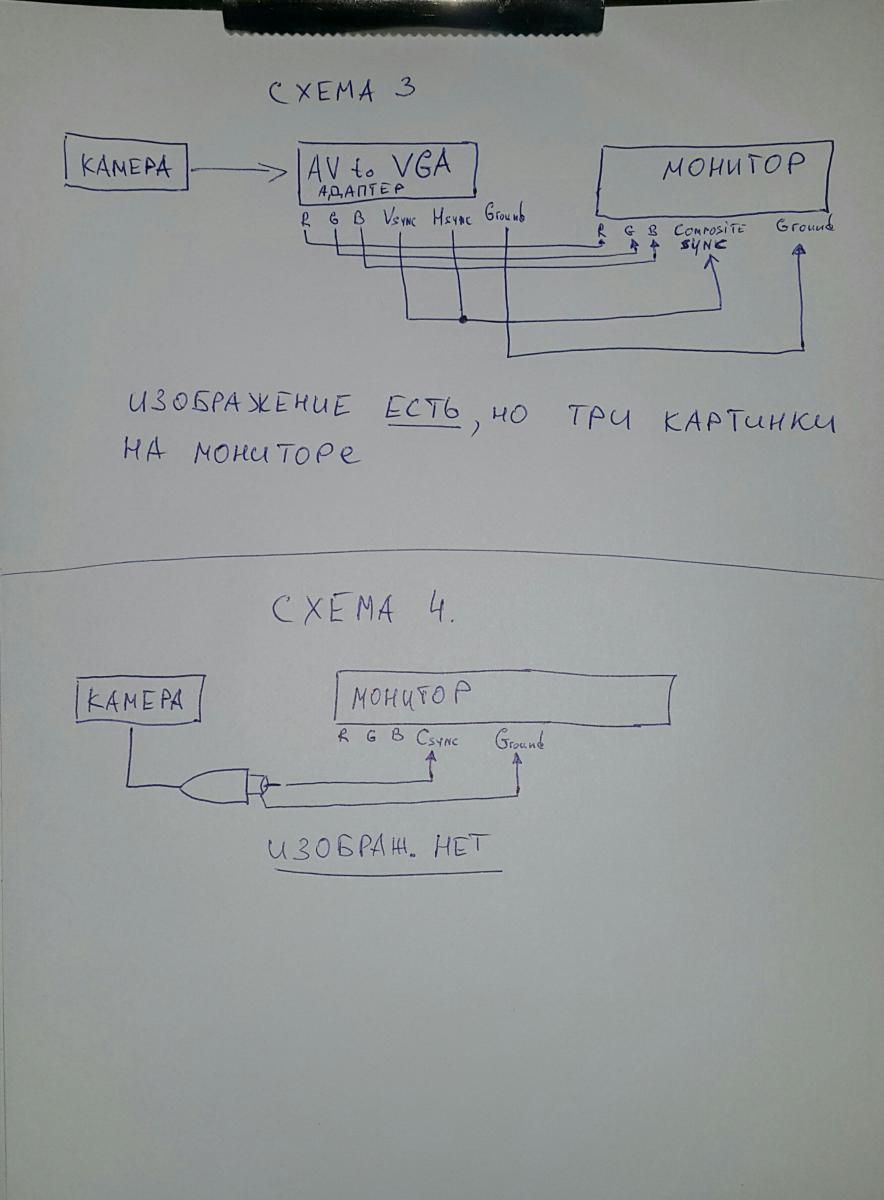 СХЕМА 3
КАМЕРА
AV to VGA
АДАПТЕР
МОНИТОР
R G B Vsync Hsync Ground
R G B Composite Ground
SYNC
ИЗОБРАЖЕНИЕ ЕСТЬ, НО ТРИ КАРТИНКИ
НА МОНИТОРЕ
СХЕМА 4.
КАМЕРА
МОНИТОР
R G B Csync Ground
ИЗОБРАЖ. НЕТ